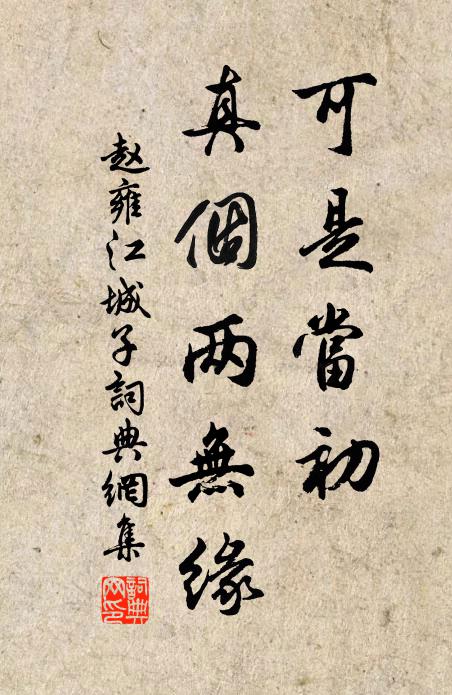 可是當初
真個兩無緣
赵雍江城子詞典網集
詞典
网印